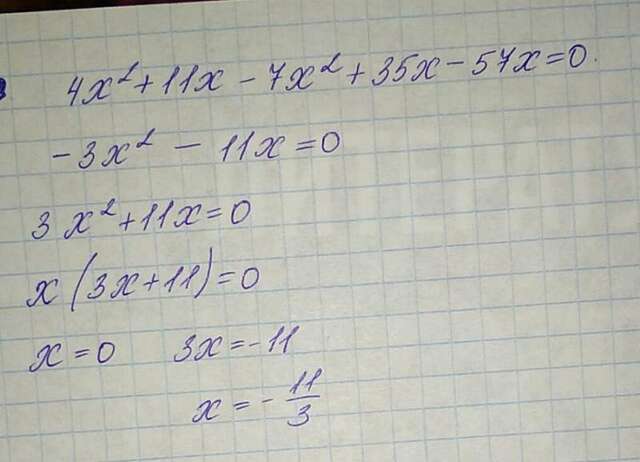 4x² + 11x - 7x² + 35x - 57x = 0.
-3x² - 11x = 0
3x² + 11x = 0
x(3x + 11) = 0
x = 0 3x = -11
x = -11/3